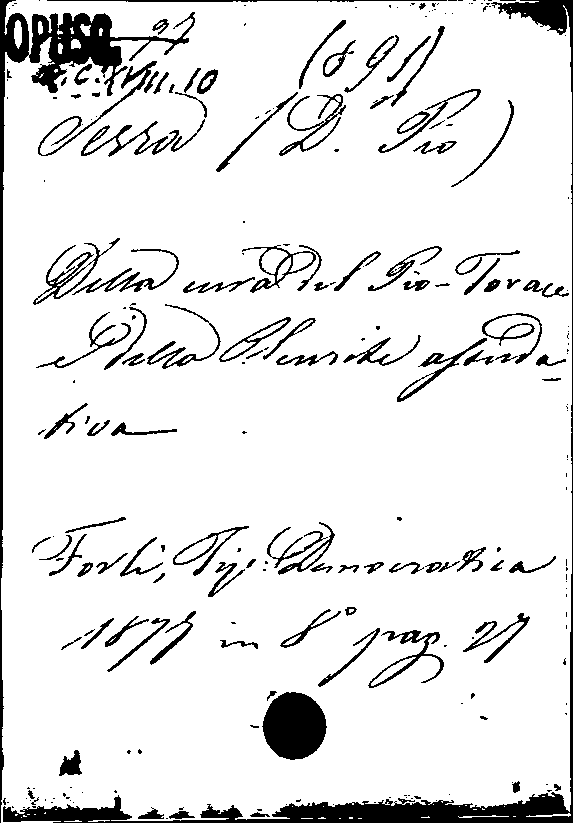 OPUSC. 97
R.C. XVIII. 10 (891)
Serra (Dr. Pio)
Della cura del Pio-Torace
e della Pleurite assuda-
tiva
Forlì, Tip. Democratica
1877 in 8° pag. 27